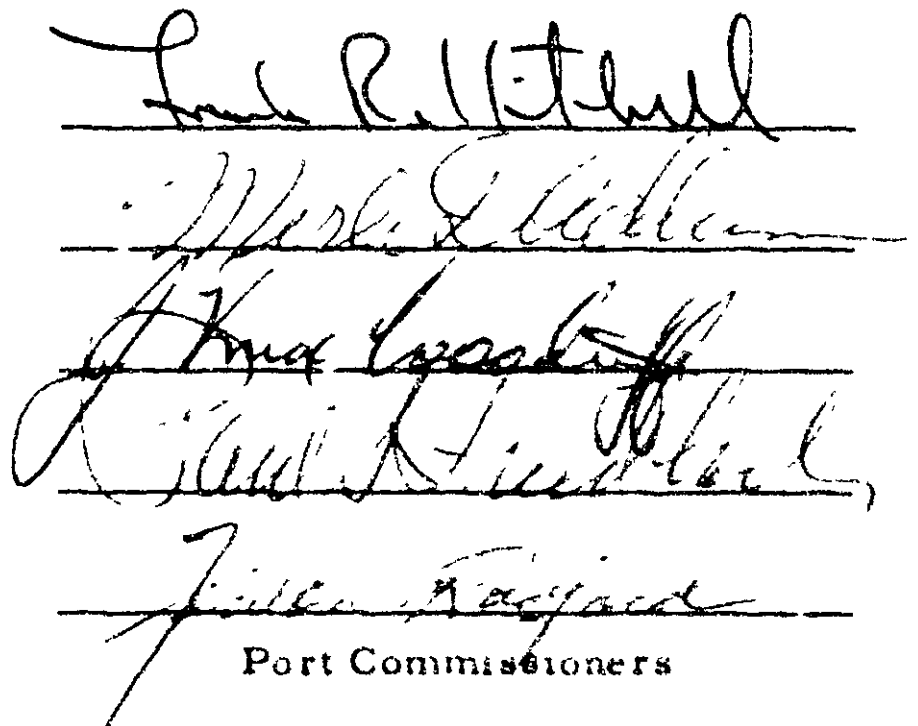 Frank R. Kitchell
Merle D. Adlum
J. Knox Woodruff
Paul S. Friedlander
Port Commissioners